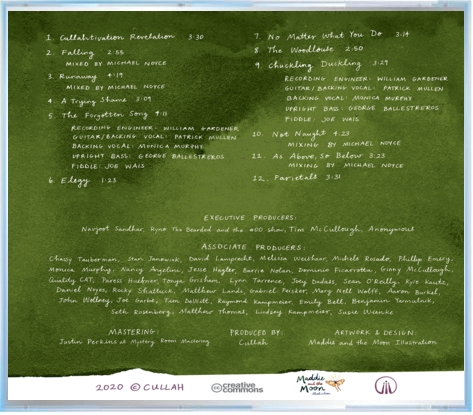 1. Cullahtivation Revelation 3:30
2. Falling 2:55
MIXED BY MICHAEL NOYCE
3. Runaway 4:19
MIXED BY MICHAEL NOYCE
4. A Trying Shame 3:09
5. The Forgotten Song 4:11
RECORDING ENGINEER: WILLIAM GARDENER
GUITAR/BACKING VOCAL: PATRICK MULLEN
BACKING VOCAL: MONICA MURPHY
UPRIGHT BASS: GEORGE BALLESTREROS
FIDDLE: JOE WAIS
6. Elegy 1:23
7. No Matter What You Do 3:14
8. The Woodlouse 2:50
9. Chuckling Duckling 3:29
RECORDING ENGINEER: WILLIAM GARDENER
GUITAR/BACKING VOCAL: PATRICK MULLEN
BACKING VOCAL: MONICA MURPHY
UPRIGHT BASS: GEORGE BALLESTREROS
FIDDLE: JOE WAIS
10. Not Naught 4:23
MIXING BY MICHAEL NOYCE
11. As Above, So Below 3:23
MIXING BY MICHAEL NOYCE
12. Parietals 3:31
EXECUTIVE PRODUCERS:
Navjoot Sandhar, Ryan The Bearded and the #00 Shar, Tim McCullough, Anonymous
ASSOCIATE PRODUCERS:
Chassy Tauberman, Stan Janowiak, David Lamprecht, Melissa Weishaar, Michele Rosado, Phillip Emery,
Monica Murphy, Nancy Angelini, Jesse Hagler, Barrie Nolan, Dominic Ficarrotta, Ginny McCullough,
Quality CAT, Paress Huebner, Tonya Grisham, Lynn Torrence, Joey Dadals, Sean O'Reilly, Kyle Kautz,
Daniel Noyes, Rocky Shattuck, Matthew Lands, Gabriel Nesker, Mary Nell Wolff, Aaron Burkel,
John Wolney, Joe Garbe, Tim DeWitt, Raymond Kampmeier, Emily Bell, Benjamin Yarmulnik,
Seth Rosenberg, Matthew Thomas, Lindsey Kampmeier, Susie Wiencke
MASTERING:
Justin Perkins at Mystery Room Mastering
PRODUCED BY:
Cullah
ARTWORK & DESIGN:
Maddie and the Moon Illustration
2020 © CULLAH
creative commons
Maddie
and the
Moon